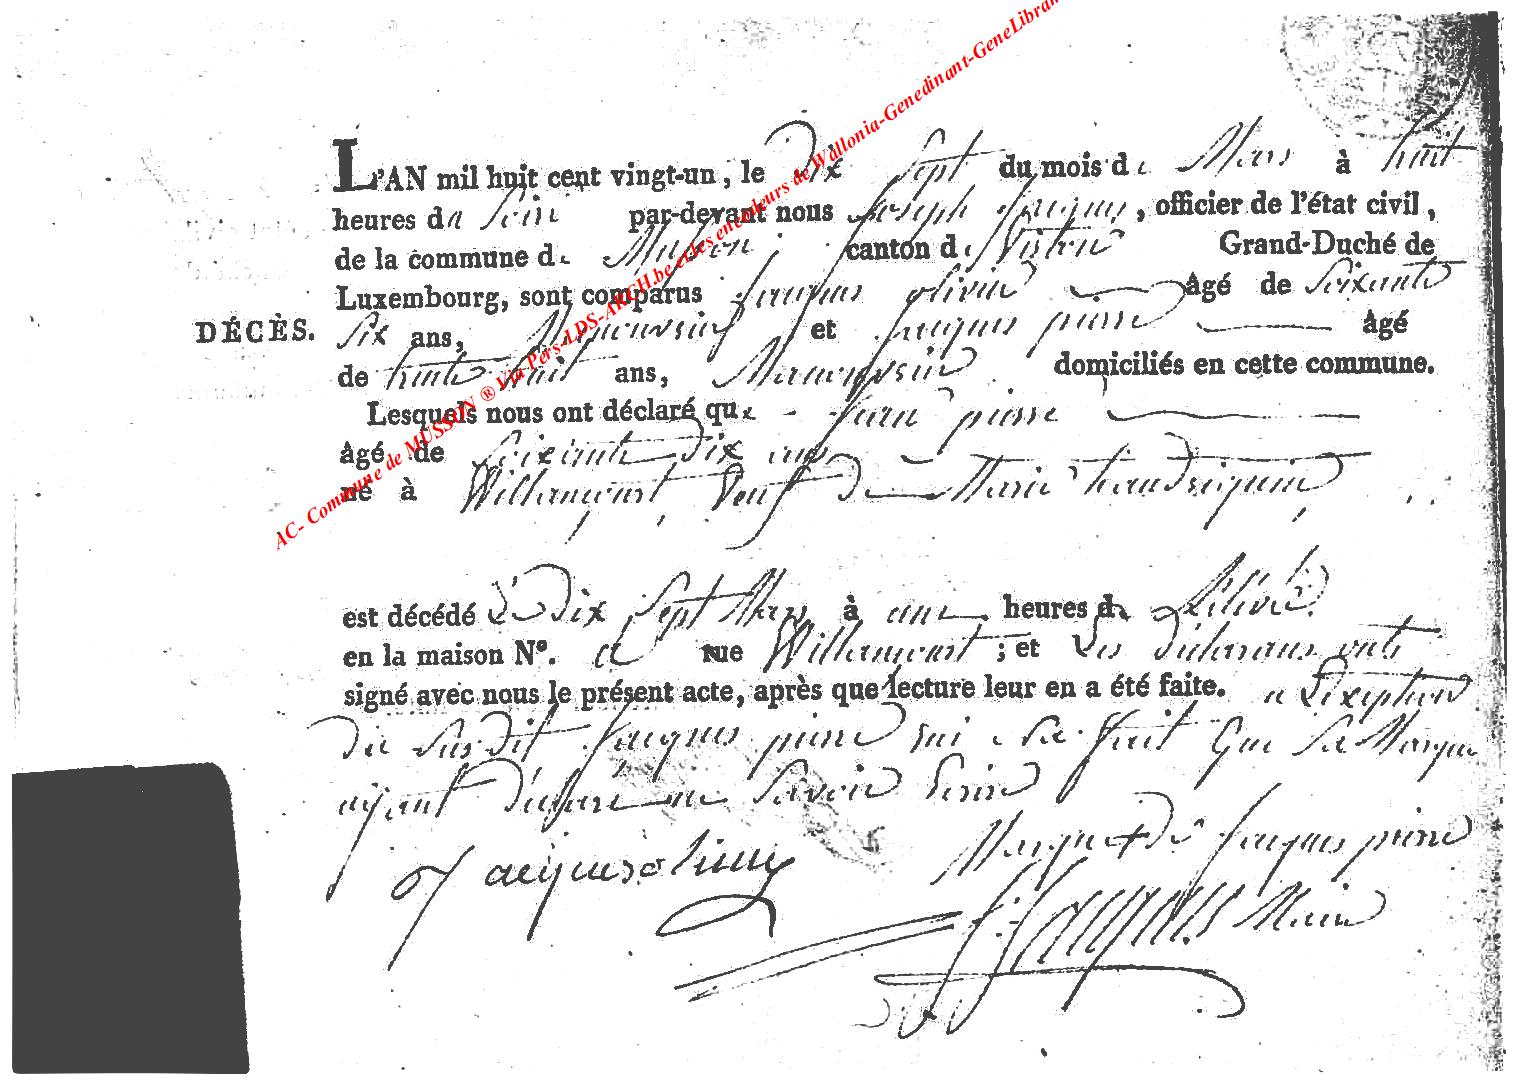 L'AN mil huit cent vingt-un, le Dix Sept du mois de Mars à huit
heures du Soir par-devant nous Joseph Jacques, officier de l'état civil,
de la commune de Musson canton de Virton Grand-Duché de
Luxembourg, sont comparus Jacques olivier âgé de Soixante
DÉCÈS.
Six ans, Manouvrier et Jacques pierre âgé
de trente huit ans, Manouvrier domiciliés en cette commune.
Lesquels nous ont déclaré que Jean pierre
âgé de Soixante Dix ans
né à Willancourt, Veuf de Marie
est décédé Le Dix Sept Mars à une heures de
en la maison N°. rue Willancourt ; et Les déclarans onts
signé avec nous le présent acte, après que lecture leur en a été faite. a L'exeption
du Susdit Jacques pierre qui na fait que Sa Marque
ayant déclaré ne Savoir Ecrire
Jacques olivier
Marque + de Jacques pierre
J: Jacques Maire
AC- Commune de MUSSON ® Via Pers-LDS-ARCH.be et les encodeurs de Wallonia-Genedinant-GeneLibran